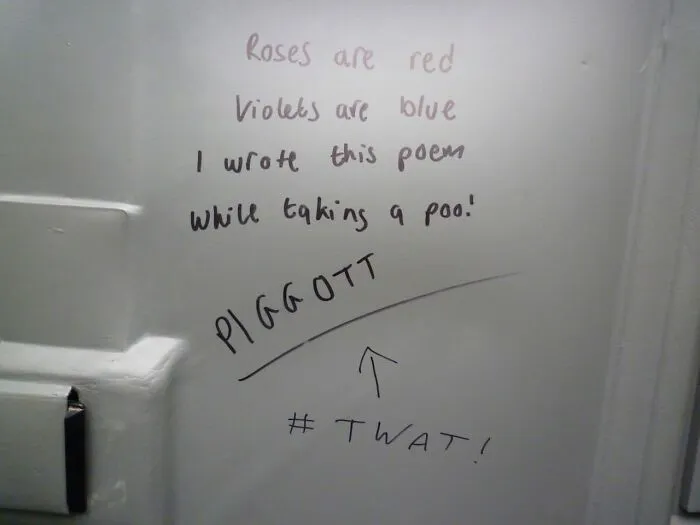 Roses are red
Violets are blue
I wrote this poem
while taking a poo!
PIGGOTT
# TWAT!